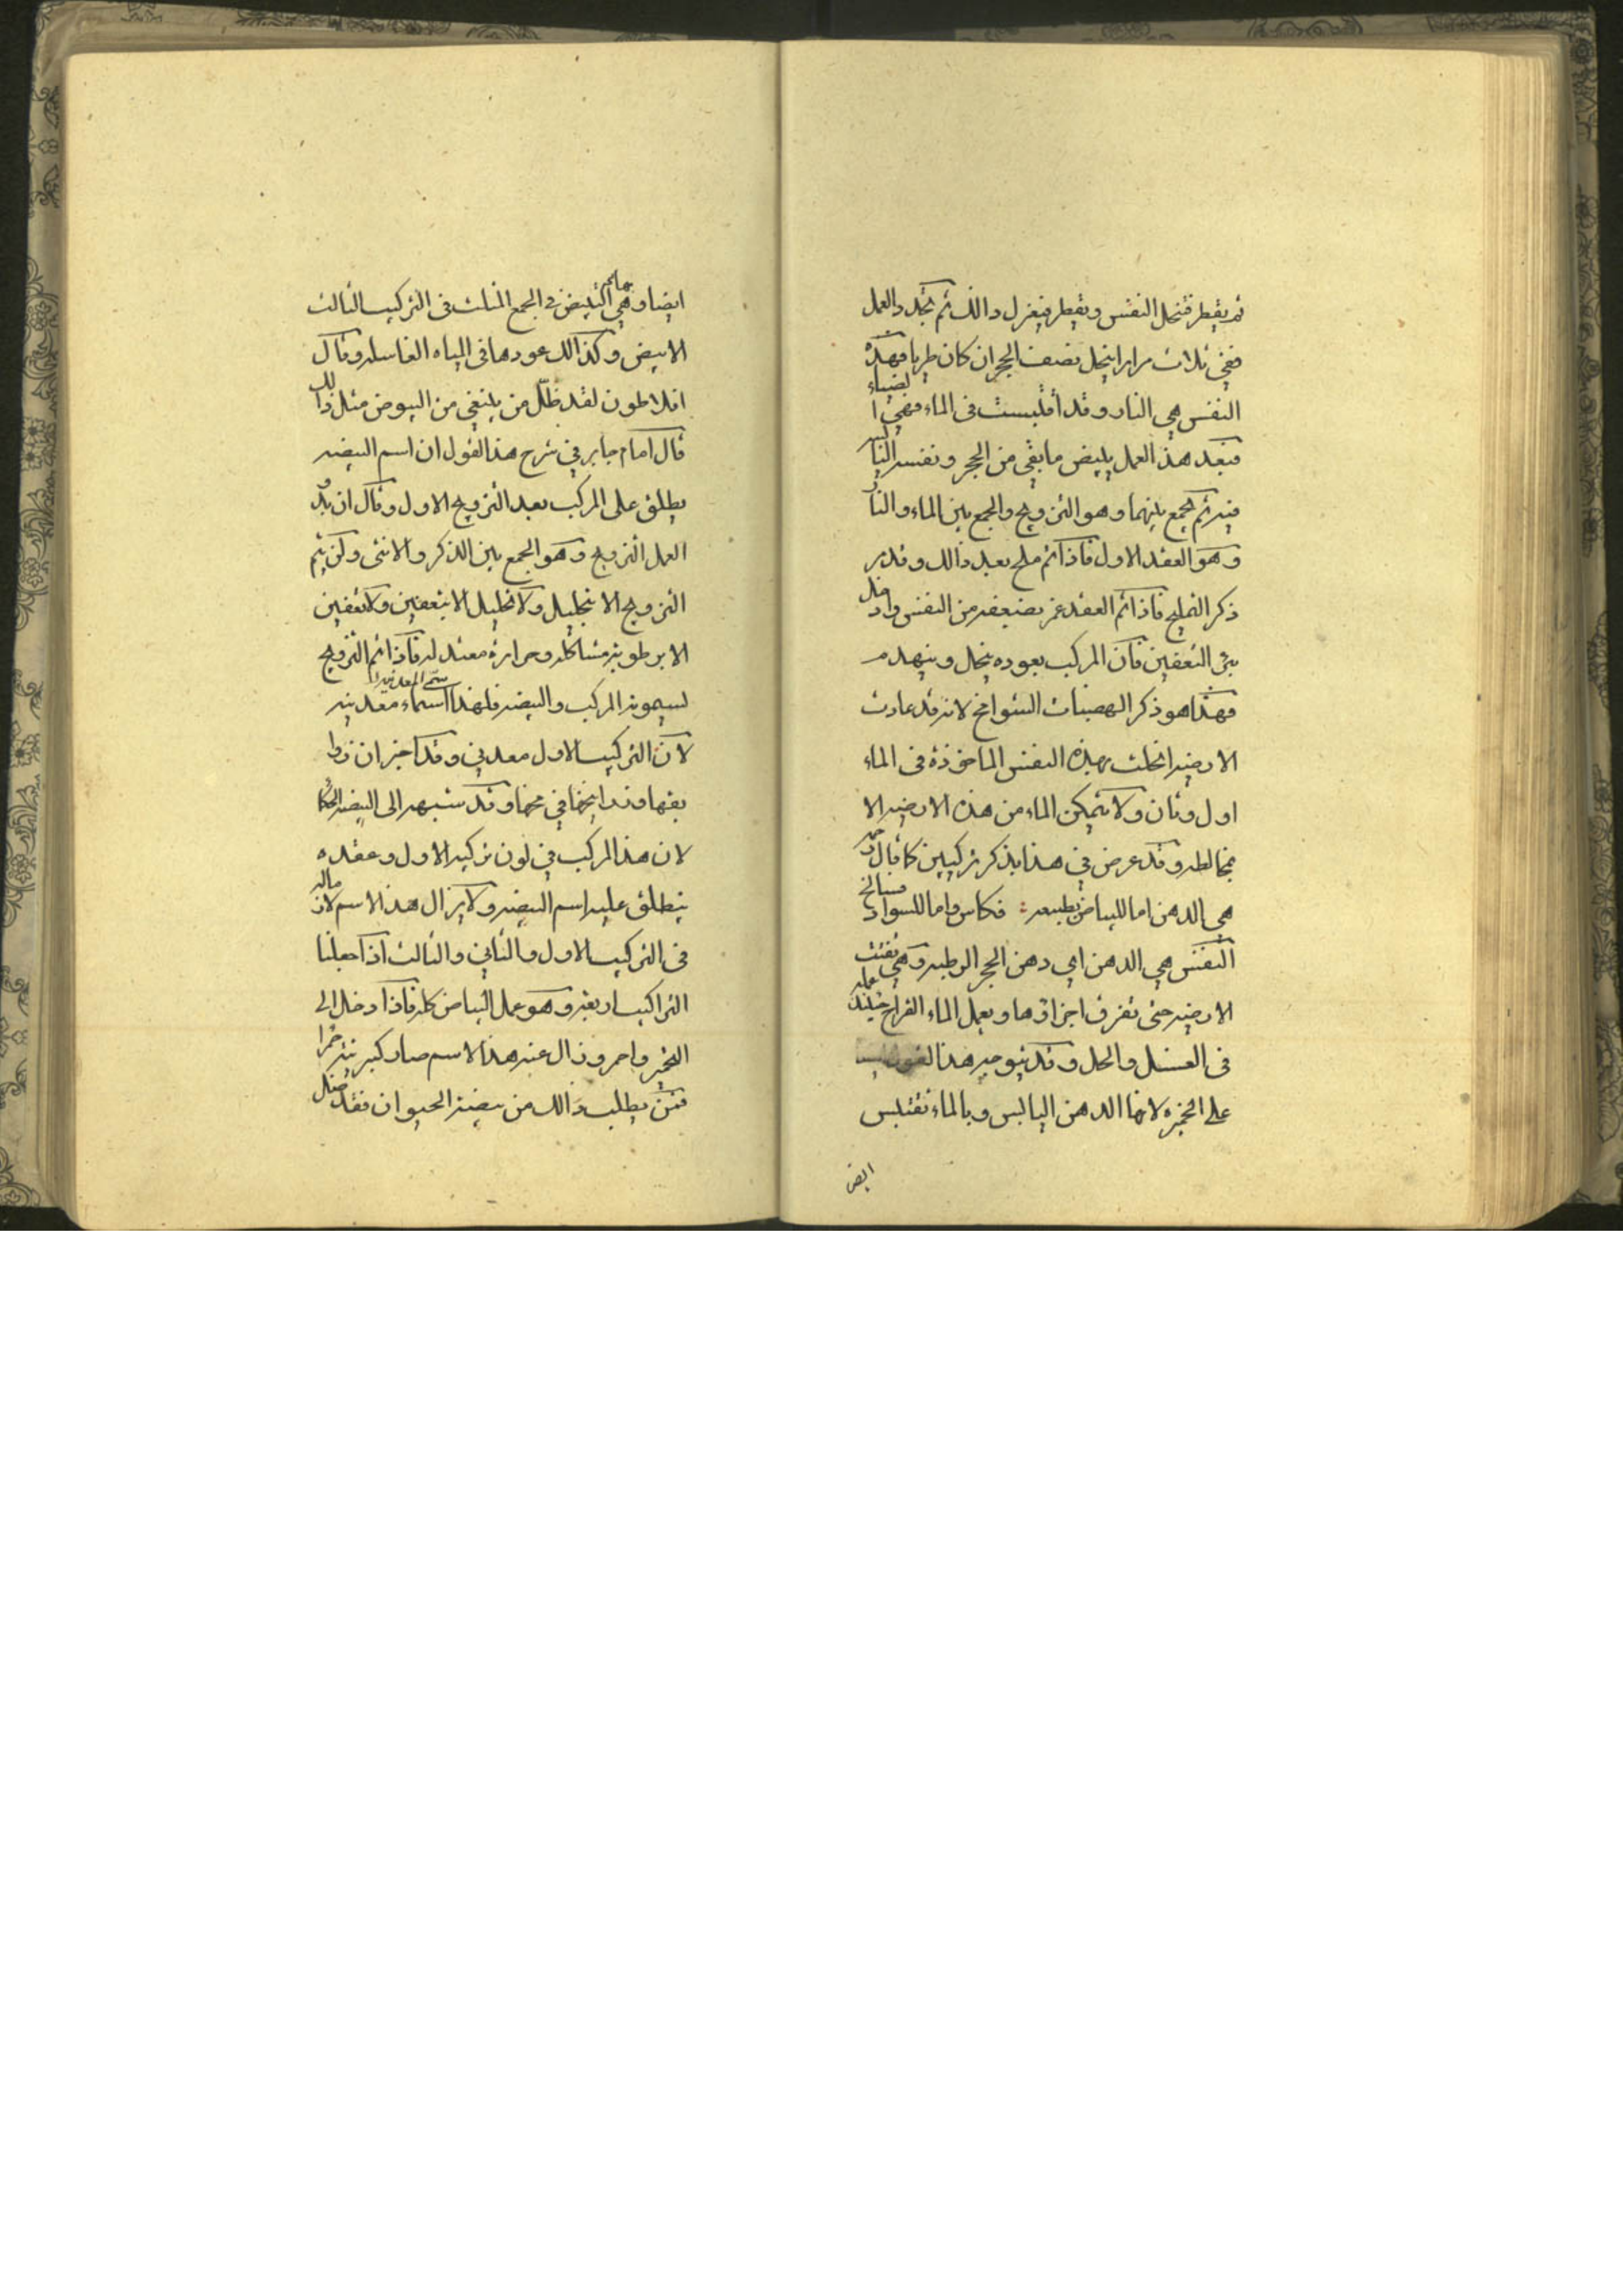 ثم يقطر فتنحل النفس ويقطر فيغزل دالك ثم يجدد العمل
ففي ثلاث مرار ينحل نصف الحجر ان كان طريا فهذه
النفس هي النار وقد اقلبست في الماء فهي الضياء
فبعد هذ العمل يلييض ما بقي من الحجر ونفسه
فيه ثم يجمع بينهما وهو التزويج والجمع بين الماء والنار
وهو العقد الاول فاذا تم ملح بعد ذالك وقد
ذكر التمليح فاذا تم العقد عز بضعفه من النفس وادخل
بئر التعفين فان المركب بعوده ينحل وينهدم
فهذا هو ذكر الهضبات الشوامخ لانه قد عادت
الارضيه انحلت بهذه النفس الماخوذة في الماء
اول وثان ولا يتمكن الماء من هذه الارضيه الا
بمخالطه وقد عرض في هذا بذكر تركيبين كما قال
هي الدهن اما للبياض بطبيعه فكاس واما للسواد فسالخ
النفس هي الدهن اي دهن الحجر الرطبه وهي تفتت
الارضيه حتى تفرق اجزاؤها ويعمل الماء القراح حينئذ عمله
في الغسل والحل وقد يتوجه هذا القول
على الخميره لانها الدهن اليابس وبالماء تقتبس
ايض
ايضا وهي التبييض في الجمع المثلث في التركيب الثالث
الابيض وكذالك عودها في المياه الغاسله وقال
افلاطون لقد ظل من يبتغي من البيوض مثل ذالك
قال امام جابر في شرح هذ القول ان اسم البيضه
يطلق على المركب بعد التزويج الاول وقال ان بدو
العمل التزويج وهو الجمع بين الذكر والانثى ولن يتم
التزويج الا بتحليل ولا تحليل الا بتعفين ولا تعفين
الا برطوبة مشاكله وحرارة معتدله فاذا تم التزويج
لسيمونه المركب والبيضه فلهذا سمى اسماء معدنيه
لان التركيب الاول معدني وقد اخبر ان
بقها وقد شبهه الى البيضه الحكما
لان هذ المركب في لون تركيبه الاول وعقده
ينطلق عليه اسم البيضه ولا يزال هذ الاسم لازما له
في التركيب الاول والثاني والثالث اذا جعلنا
التراكيب اربعة وهو عمل البياض كله فاذا دخل الى
التخمير واحمر وزال عنه هذ الاسم صار كبريتة حمرا
فمن يطلب ذالك من بيضة الحيوان فقد ضل